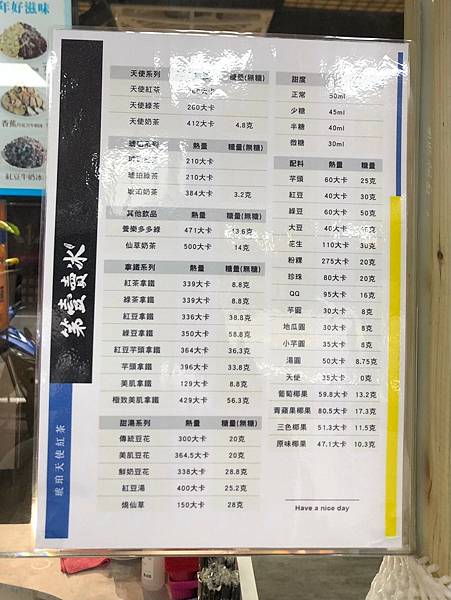 年好滋味
紅豆牛奶冰
第壹賣冰
琥珀天使紅茶
天使系列 糖量(無糖)
天使紅茶 大卡
天使綠茶 260大卡
天使奶茶 412大卡 4.8克
琥珀系列 熱量 糖量(無糖)
210大卡
琥珀綠茶 210大卡
琥珀奶茶 384大卡 3.2克
其他飲品 熱量 糖量(無糖)
養樂多多綠 471大卡
仙草奶茶 500大卡 14克
拿鐵系列 熱量 糖量(無糖)
紅茶拿鐵 339大卡 8.8克
綠茶拿鐵 339大卡 8.8克
紅豆拿鐵 336大卡 38.8克
綠豆拿鐵 350大卡 58.8克
紅豆芋頭拿鐵 364大卡 36.3克
芋頭拿鐵 396大卡 33.8克
美肌拿鐵 129大卡 8.8克
極致美肌拿鐵 429大卡 56.3克
甜湯系列 熱量 糖量(無糖)
傳統豆花 300大卡 20克
美肌豆花 364.5大卡 20克
鮮奶豆花 338大卡 28.8克
紅豆湯 400大卡 25.2克
燒仙草 150大卡 28克
甜度
正常 50ml
少糖 45ml
半糖 40ml
微糖 30ml
配料 熱量 糖量
芋頭 60大卡 25克
紅豆 40大卡 30克
綠豆 60大卡 50克
大豆 40大卡
花生 110大卡 30克
粉粿 275大卡 20克
珍珠 80大卡 20克
QQ 95大卡 16克
芋圓 30大卡 8克
地瓜圓 30大卡 8克
小芋圓 35大卡 8克
湯圓 50大卡 8.75克
天使 35大卡 0克
葡萄椰果 59.8大卡 13.2克
青蘋果椰果 80.5大卡 17.3克
三色椰果 51.3大卡 11.5克
原味椰果 47.1大卡 10.3克
Have a nice day